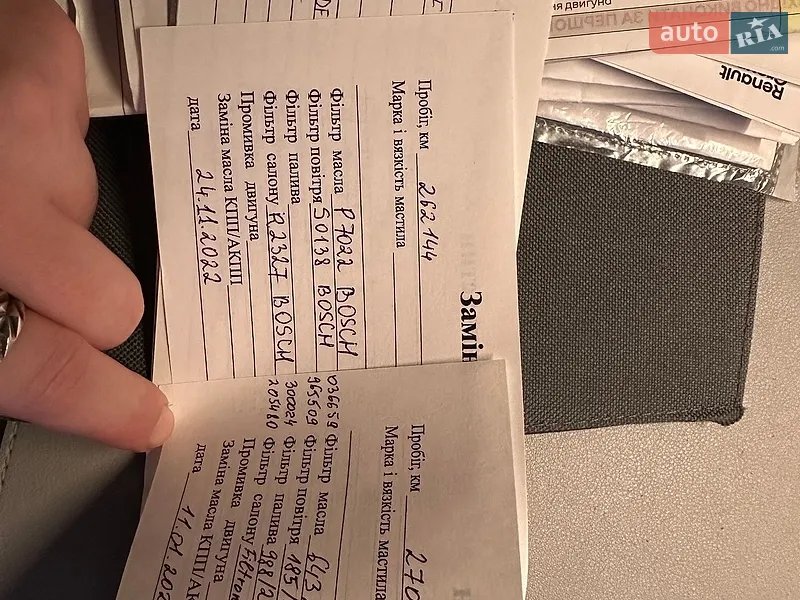 я двигуно
ХІДНО ВИКОНАТИ ЗА ПЕРШО
auto RIA
.com
Renault
Замін
Пробіг, км 262144
Марка і вязкість мастила
Фільтр масла P7022 BOSCH
Фільтр повітря S0138 BOSCH
Фільтр палива
Фільтр салону R2327 BOSCH
Промивка двигуна
Заміна масла КПП/АКПП
дата 24.11.2022
Пробіг, км 270
Марка і вязкість мастила
036659 Фільтр масла
965509 Фільтр повітря
300024 Фільтр палива
205480 Фільтр салону
Промивка двигуна
Заміна масла КПП/АК
дата 11.01.202